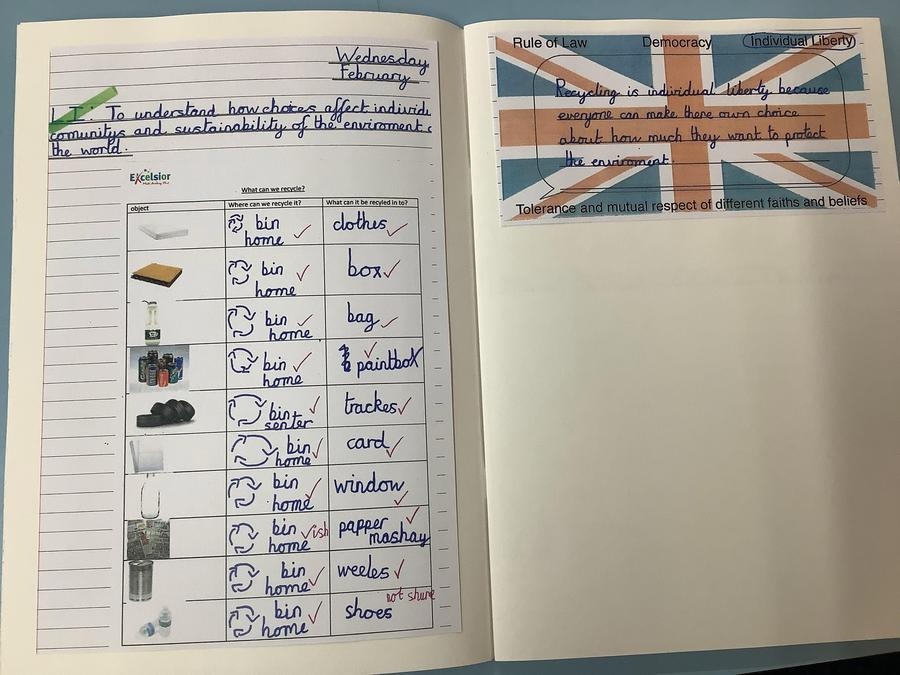 Wednesday
February
L.I: To understand how choices affect individu
comunitys and sustainability of the enviroment
the world.
Excelsior
What can we recycle?
object Where can we recycle it? What can it be recyled in to?
bin home clothes
bin home box
bin home bag
bin home paintbox
bin senter trackes
bin home card
bin home window
bin home ish papper mashay
bin home weeles
bin home shoes not shure
Rule of Law Democracy Individual Liberty
Recycling is individual liberty because
everyone can make there own choice
about how much they want to protect
the enviroment.
Tolerance and mutual respect of different faiths and beliefs